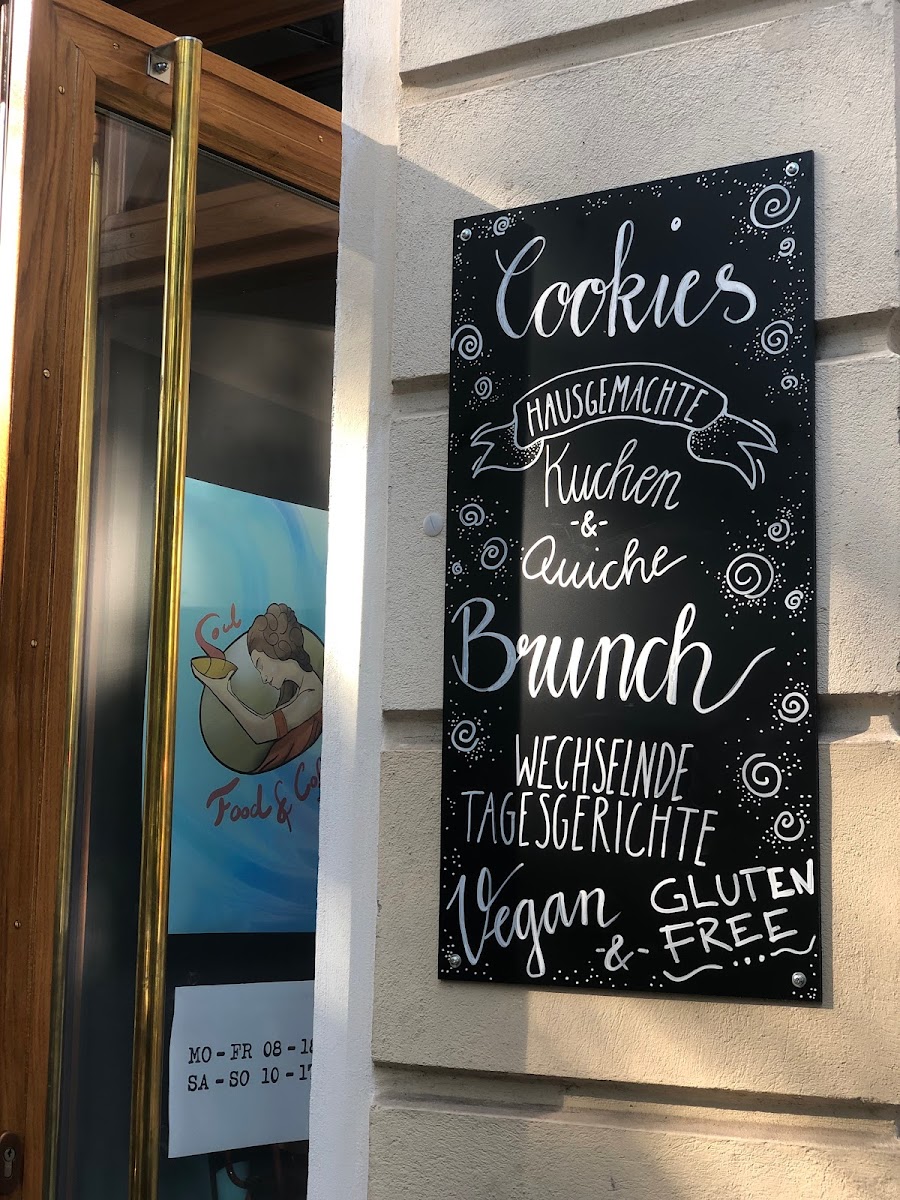 Cookies
HAUSGEMACHTE
Kuchen
-&-
Quiche
Brunch
WECHSELNDE
TAGESGERICHTE
Vegan
-&-
GLUTEN
FREE...
Soul
Food &
MO-FR 08-18
SA-SO 10-17